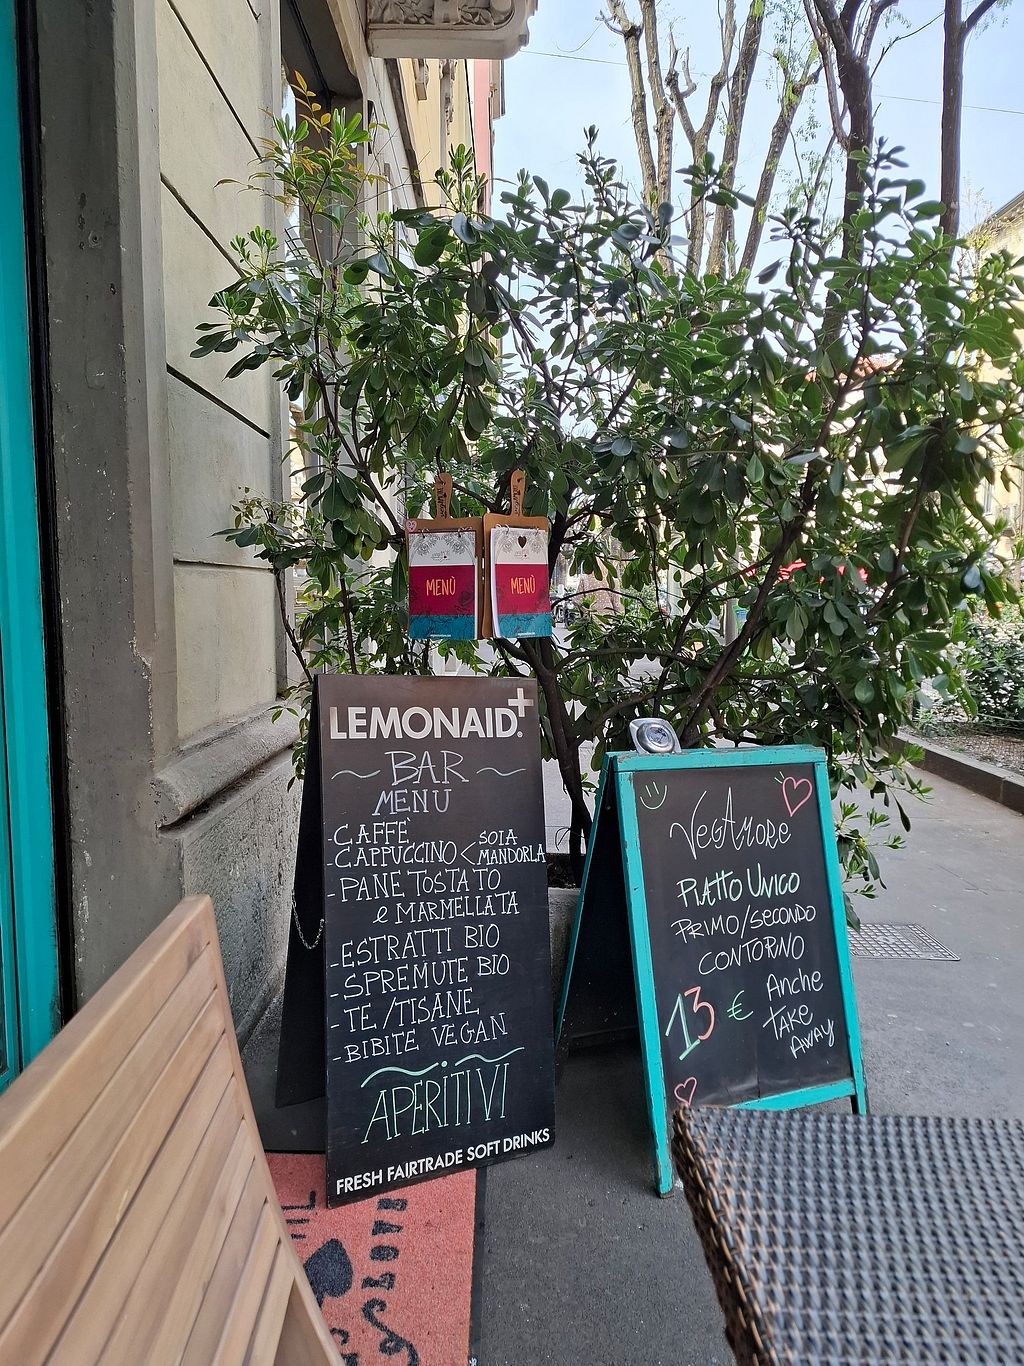 MENÙ
MENÙ
LEMONAID+
BAR
MENU
-CAFFÈ
-CAPPUCCINO < SOIA
MANDORLA
-PANE TOSTATO
e MARMELLATA
-ESTRATTI BIO
-SPREMUTE BIO
-TE/TISANE
-BIBITE VEGAN
APERITIVI
FRESH FAIRTRADE SOFT DRINKS
VegAmore
PIATTO UNICO
PRIMO/SECONDO
CONTORNO
13 €
Anche
TAKE
AWAY